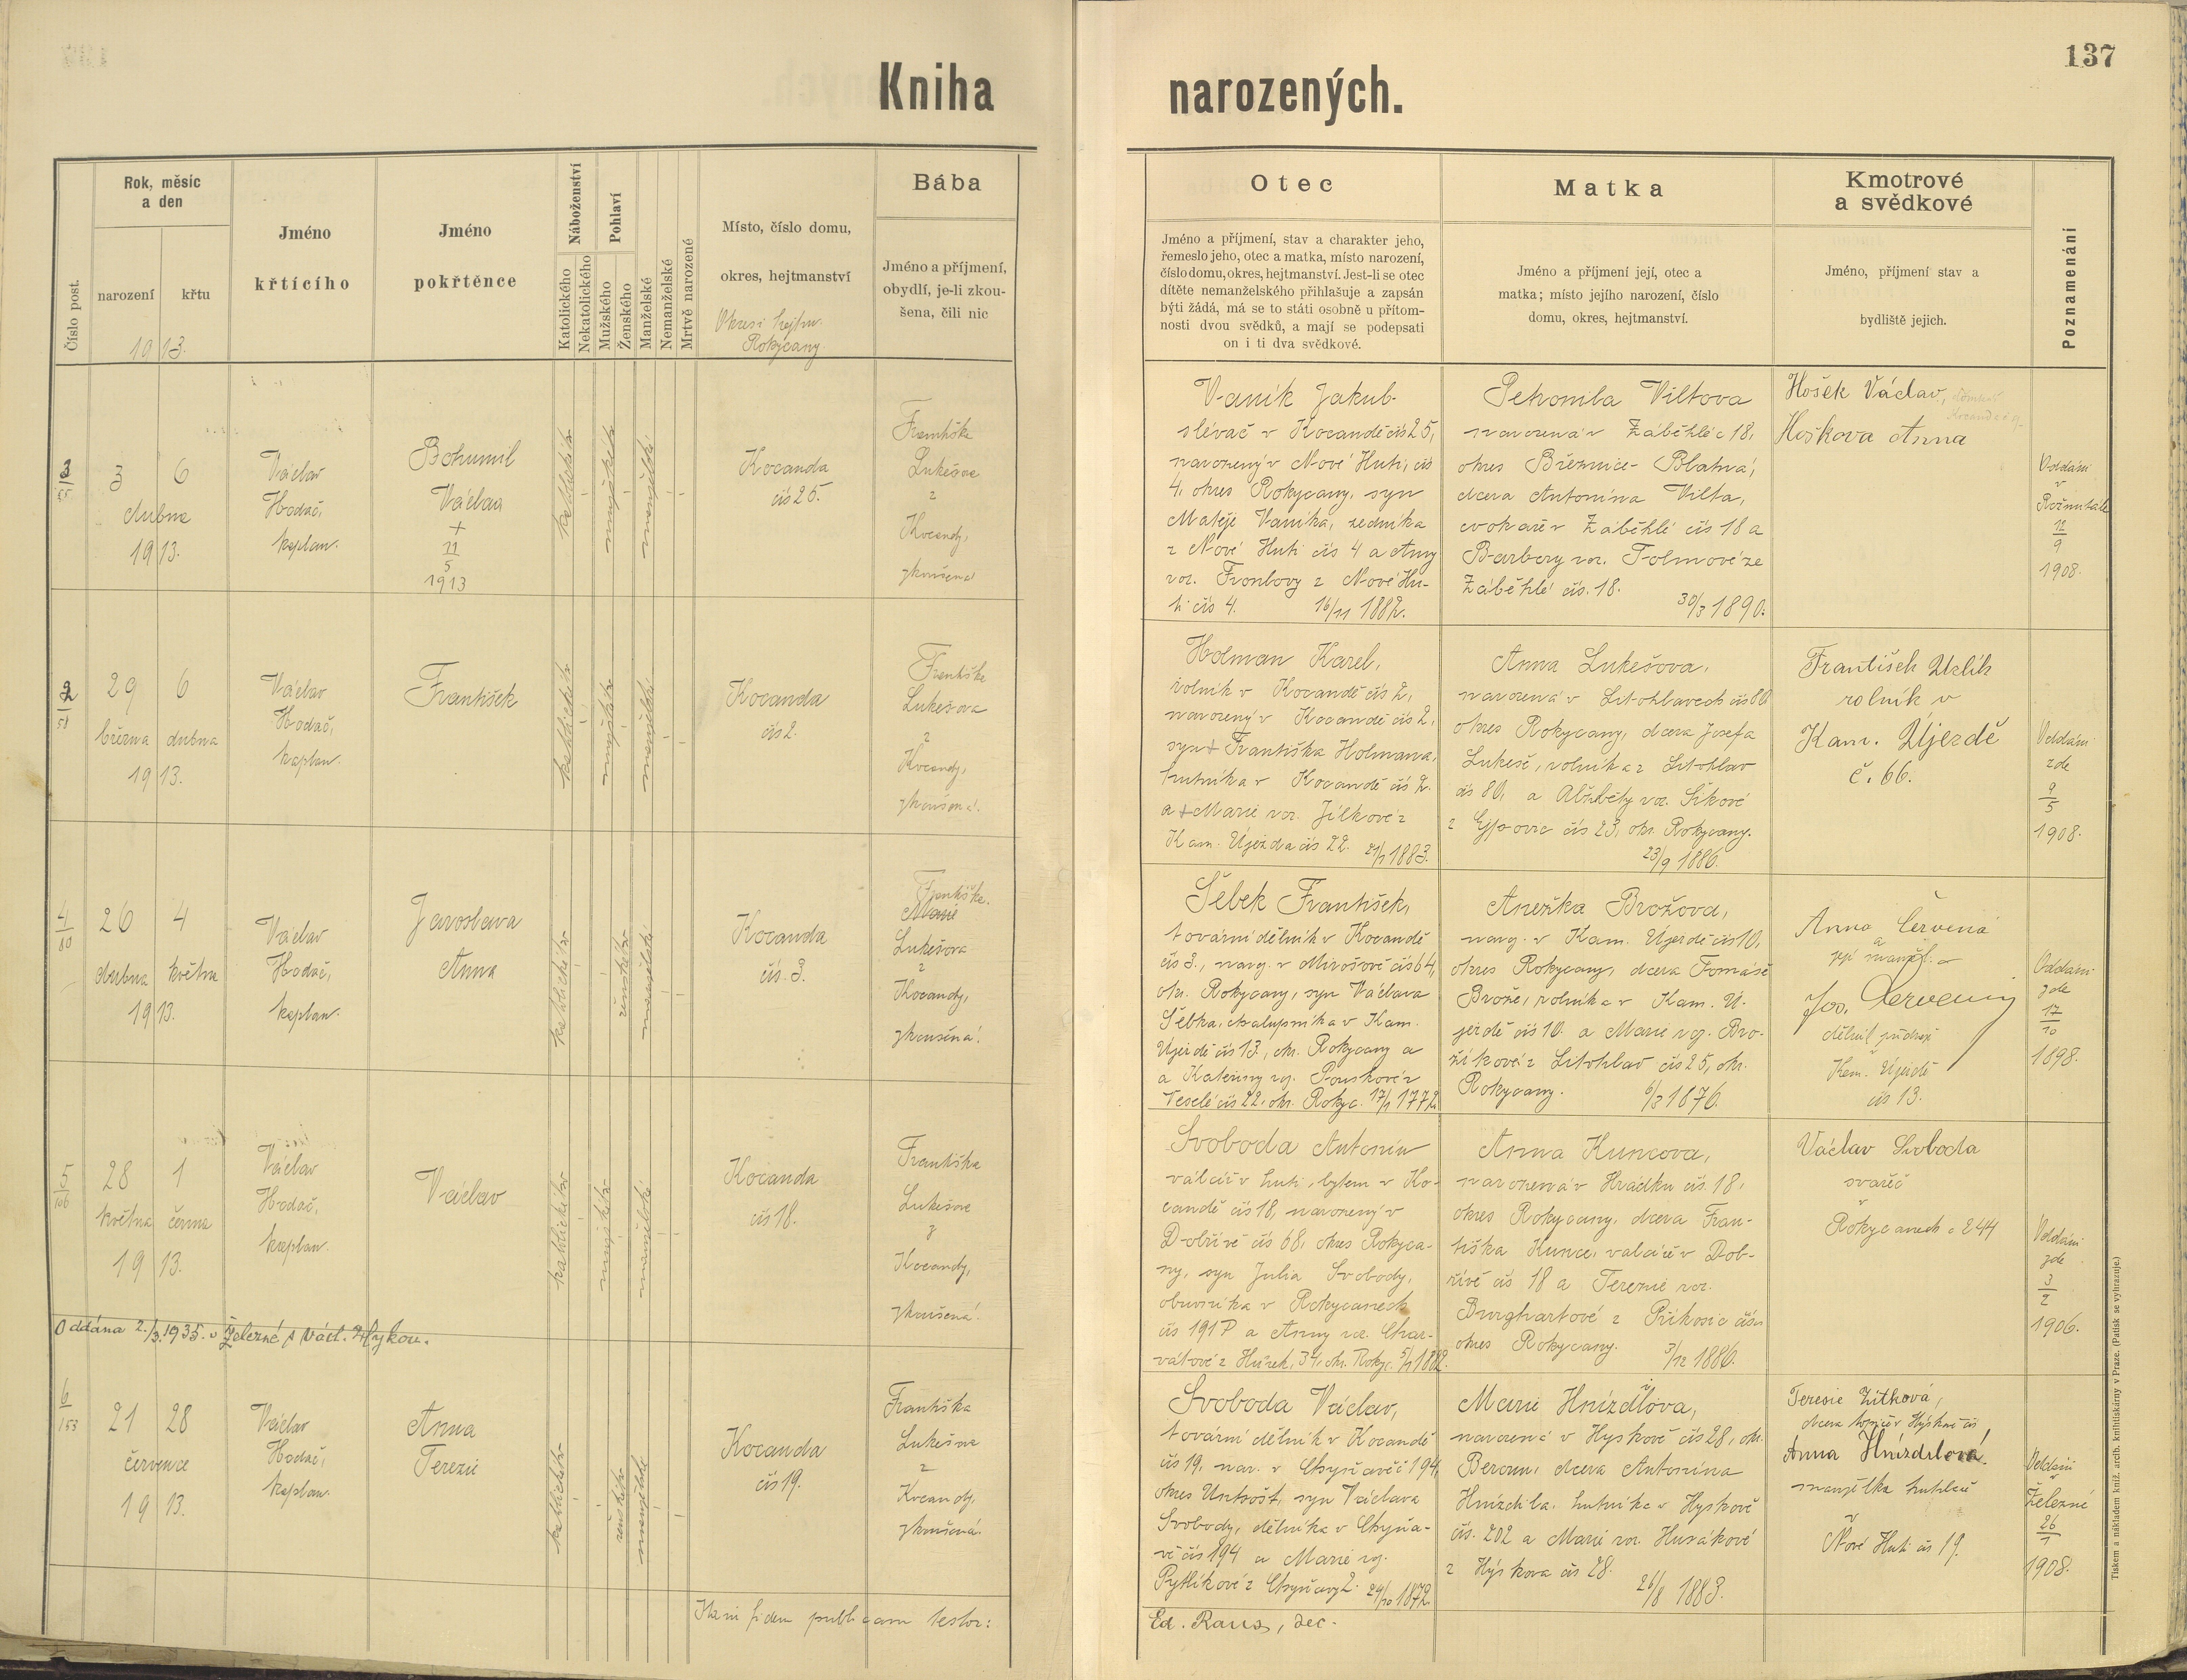 137
Kniha narozených.
Číslo post.
Rok, měsíc
a den
narození
křtu
1913.
Jméno
křtícího
Jméno
pokřtěnce
Náboženství
Katolického
Nekatolického
Pohlaví
Mužského
Ženského
Manželské
Nemanželské
Mrtvě narozené
Místo, číslo domu,
okres, hejtmanství
Okresí hejtm.
Rokycany
Bába
Jméno a příjmení,
obydlí, je-li zkou-
šena, čili nic
Otec
Jméno a příjmení, stav a charakter jeho,
řemeslo jeho, otec a matka, místo narození,
číslo domu, okres, hejtmanství. Jest-li se otec
dítěte nemanželského přihlašuje a zapsán
býti žádá, má se to státi osobně u přítom-
nosti dvou svědků, a mají se podepsati
on i ti dva svědkové.
Matka
Jméno a příjmení její, otec a
matka; místo jejího narození, číslo
domu, okres, hejtmanství.
Kmotrové
a svědkové
Jméno, příjmení stav a
bydliště jejich.
Poznamenání
3
3 6
dubna
1913.
Václav
Hodač,
kaplan.
Bohumil
Václav
+
11
5
1913
katolického
mužského
manželské
Kocanda
čís 25.
Františka
Lukešova
z
Kocandy,
zkoušená
Vaník Jakub
slévač v Kocandě čís 25,
narozený v Nové Huti, čís
4, okres Rokycany, syn
Matěje Vaníka,
z Nové Huti čís 4 a Anny
roz. z Nové Hu-
ti čís 4. 16/11 1882.
Petronila Viltova
narozená v Záběhlé č 18,
okres Březnice - Blatná,
dcera Antonína Vilta,
cvokaře v Záběhlé čís 18 a
Barbory roz. Tolmové ze
Záběhlé čís. 18.
30/3 1890.
Hošek Václav,
Hoškova Anna
Oddáni
v
Rožmitále
12
9
1908.
2
29 6
března dubna
1913.
Václav
Hodač,
kaplan.
František
katolického
mužského
manželské
Kocanda
čís 2.
Františka
Lukešova
z
Kocandy,
zkoušená.
Holman Karel,
rolník v Kocandě čís 2,
narozený v Kocandě čís 2,
syn + Františka Holmana,
hutníka v Kocandě čís 2.
a + Marie roz. Jílkové z
Kam. Újezda čís 22. 1883.
Anna Lukešova,
narozená v Litohlavech čís 80
okres Rokycany, dcera Josefa
Lukeše, rolníka z Litohlav
čís 80, a Alžběty roz. Síkové
z Ejpovic čís 23, okr. Rokycany.
23/9 1886.
František Uzlík
rolník v
Kam. Újezdě
č. 66.
Oddáni
zde
9
5
1908.
4
80
26 4
dubna května
1913.
Václav
Hodač,
kaplan.
Jaroslava
Anna
katolického
ženského
manželské
Kocanda
čís. 3.
Františka
Marie
Lukešova
z
Kocandy,
zkoušená.
Šebek František,
tovární dělník v Kocandě
čís 3., naroz. v Mirošově čís 64,
okr. Rokycany, syn Václava
Šebka, chalupníka v Kam.
Újezdě čís 13, okr. Rokycany a
a Kateřiny roz. Pouskové z
Veselé čís 22, okr. Rokyc. 17/1 1772.
Anežka Brožova,
naroz. v Kam. Újezdě čís 10,
okres Rokycany, dcera Tomáše
Brože, rolníka v Kam. Ú-
jezdě čís 10. a Marie roz. Bro-
žíkové z Litohlav čís 25, okr.
Rokycany. 6/3 1876.
Anna Červená
a
její manžel
Jos. Červený
dělník
Kam. Újezdě
čís 13.
Oddáni
zde
17
10
1898.
5
106
28 1
května června
1913.
Václav
Hodač,
kaplan.
Václav
katolického
mužského
manželské
Kocanda
čís 18.
Františka
Lukešova
z
Kocandy,
zkoušená.
Svoboda Antonín
válcíř v huti, bytem v Ko-
candě čís 18, narozený v
Dobřívě čís 68, okres Rokyca-
ny, syn Julia Svobody,
obuvníka v Rokycanech
čís 191 a Anny roz. Char-
vátové z Hůrek, 34, okr. Rokyc. 5/1 1882.
Anna Kuncova,
narozená v Hrádku čís. 18,
okres Rokycany, dcera Fran-
tiška Kunce, válcíře v Dob-
řívě čís 18 a Terezie roz.
Burghartové z Příkosic
okres Rokycany. 3/12 1886.
Václav Svoboda
svářeč
v
Rokycanech č 244
Oddáni
zde
3
2
1906.
Oddána 2./3. 1935. v Železné s Václ. Hykou.
6
153
21 28
července
1913.
Václav
Hodač,
kaplan.
Anna
Terezie
katolického
ženského
manželské
Kocanda
čís 19.
Františka
Lukešova
z
Kocandy,
zkoušená.
Svoboda Václav,
tovární dělník v Kocandě
čís 19, nar. v Chyňavě č 194,
okres Unhošť, syn Václava
Svobody, dělníka v Chyňa-
vě čís 194 a Marie roz.
Pytlíkové z Chyňavy 2. 24/10 1872.
Marie Hnízdilova,
narozená v Hyskově čís 28, okr.
Beroun, dcera Antonína
Hnízdila, hutníka v Hyskově
čís. 202 a Marie roz. Husákové
z Hýskova čís 28.
26/8 1883.
Teresie Zítková,
dcera
Anna Hnízdilová.
manželka
v
Nové Huti čís 19.
Oddáni
v
Železné
26
1
1908.
Itami fidem publicam testor:
Ed. Raus, dec.
Tiskem a nákladem kniž. arcib. knihtiskárny v Praze. (Patisk se vyhrazuje.)